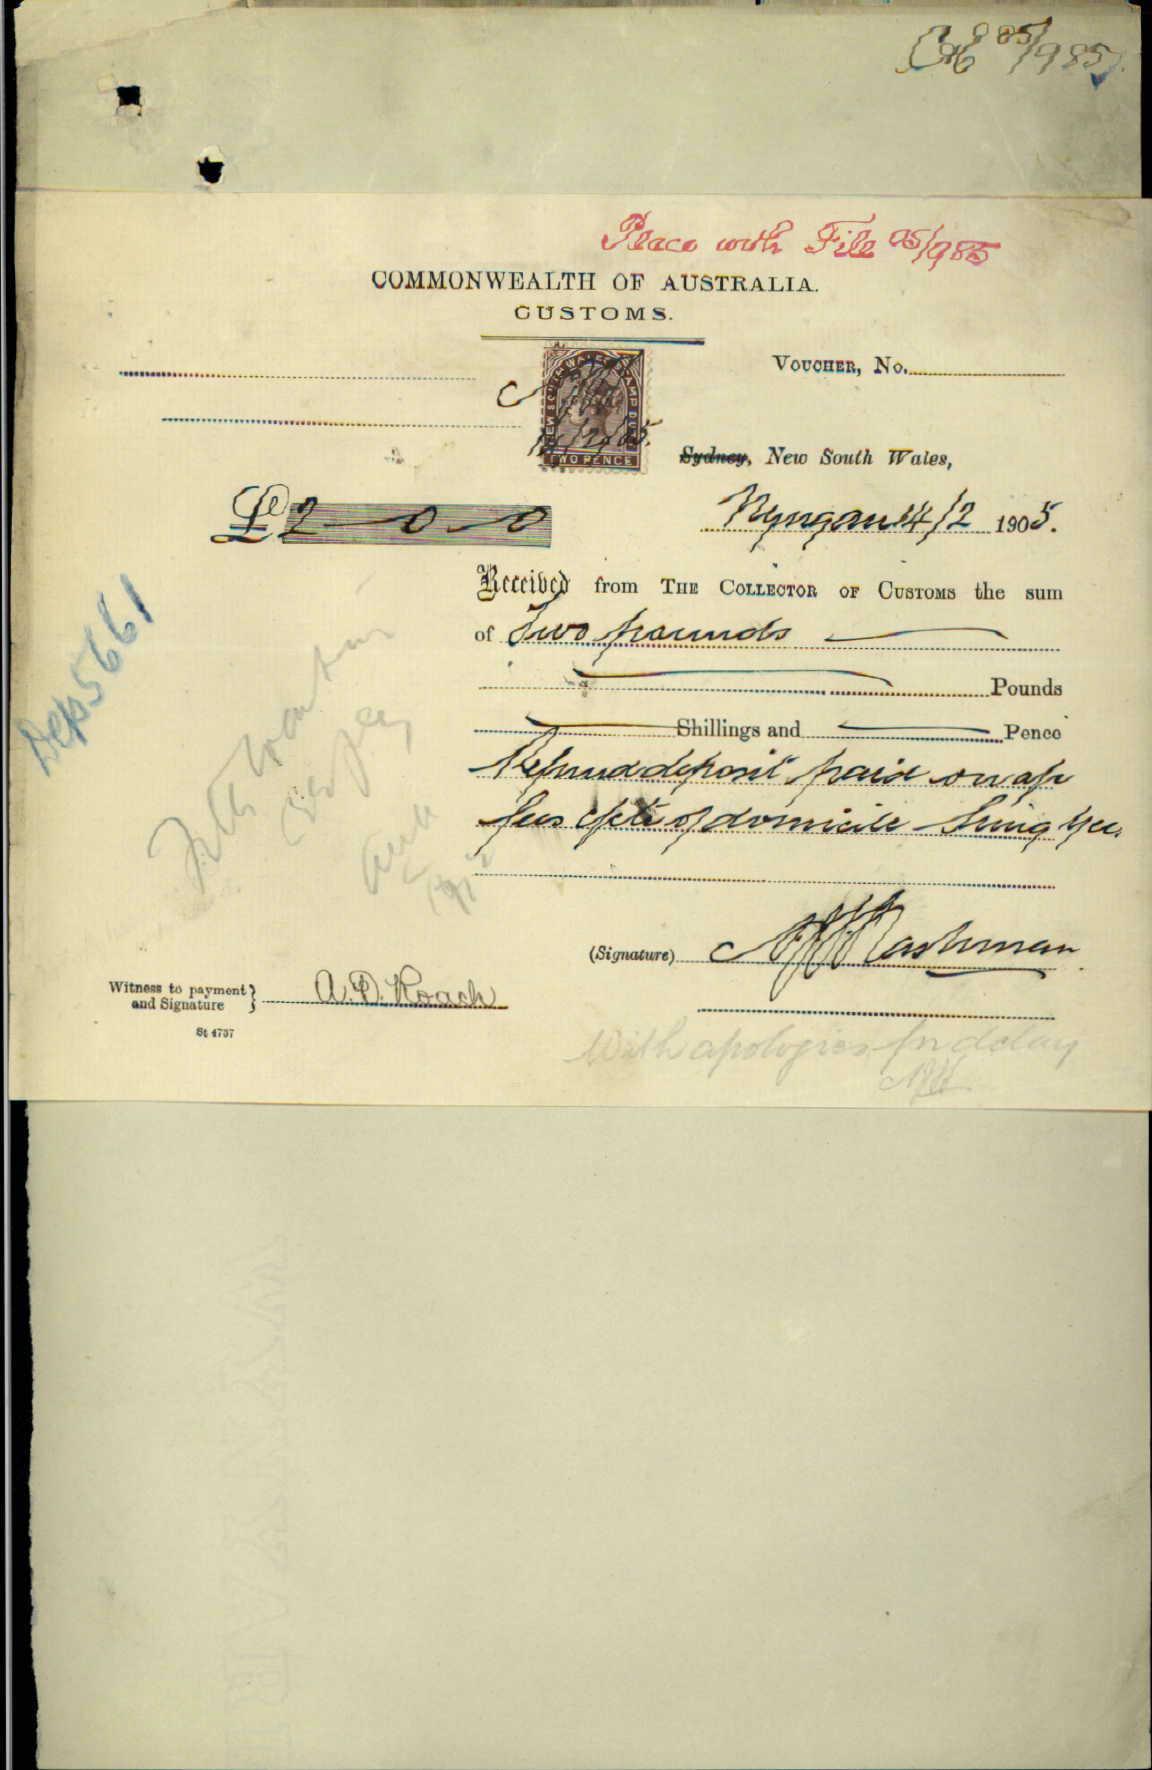 C05/985
Place with File 05/985
COMMONWEALTH OF AUSTRALIA.
CUSTOMS.
VOUCHER, No.
NEW SOUTH WALES STAMP DUTY
TWO PENCE
14/2/05.
Sydney, New South Wales,
£ 2 - 0 - 0
Nyngan 14/2 1905.
Received from THE COLLECTOR OF CUSTOMS the sum
of Two pounds
Pounds
Shillings and Pence
Dep 5661
Refund deposit paid on ap
for Cft of domicile Hing Yee.
(Signature) Cashman
Witness to payment and Signature } A. D. Roach
St 4737
With apologies for delay